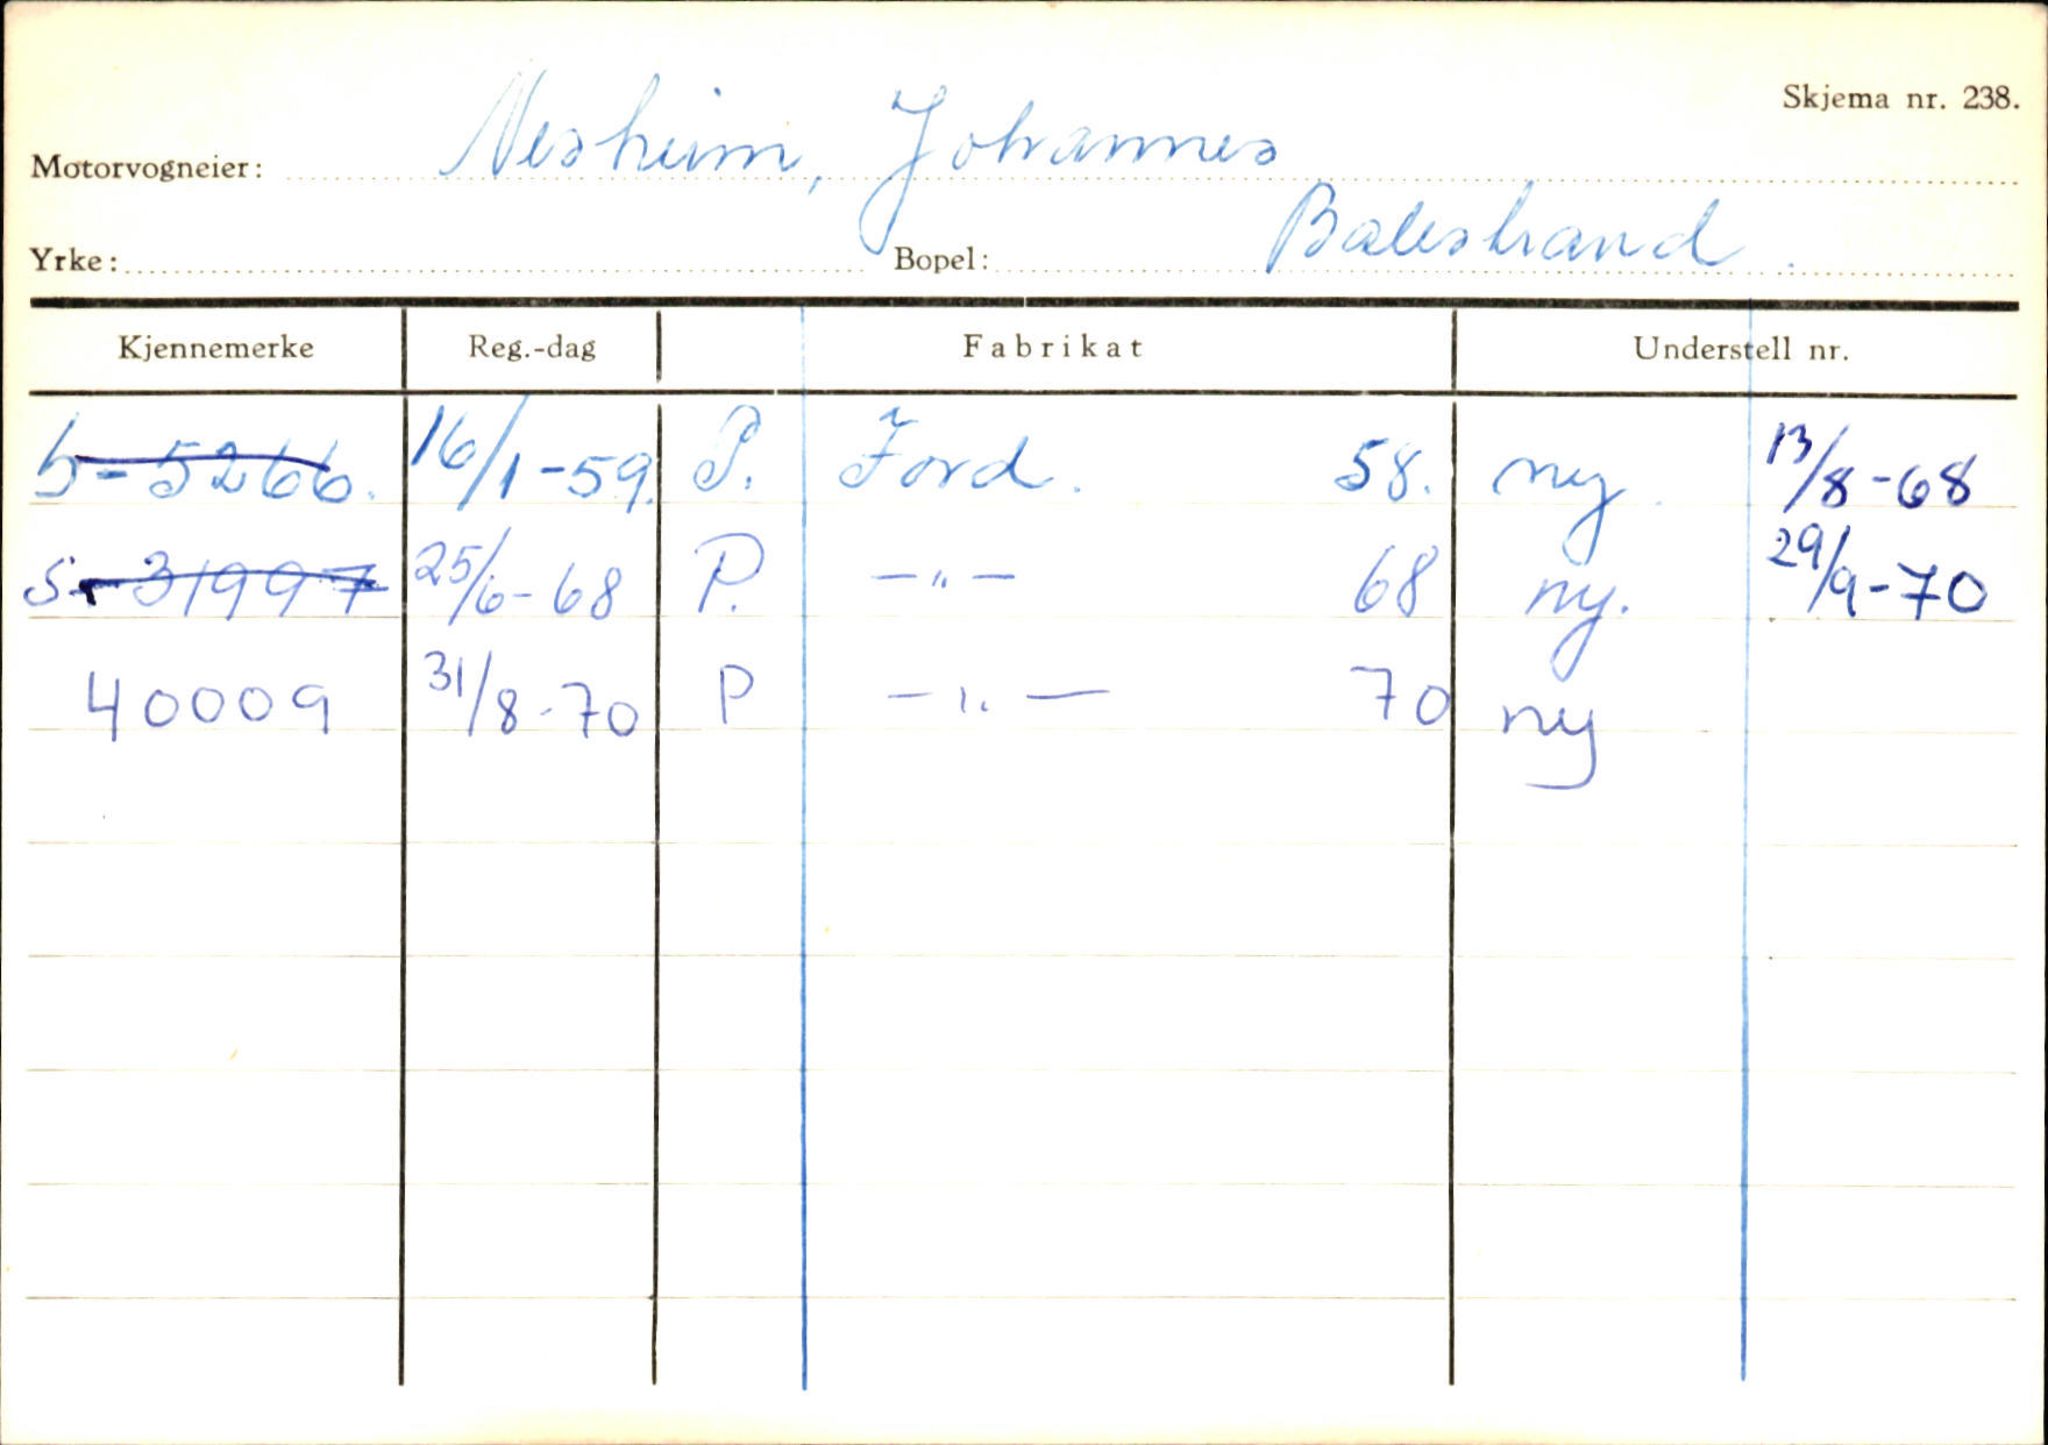 Skjema nr. 238.
Motorvogneier: Nesheim, Johannes
Yrke: Bopel: Balestrand.
Kjennemerke Reg.-dag Fabrikat Understell nr.
S-5266. 16/1-59. P. Ford. 58. ny. 13/8-68
S-31997 25/6-68 P. -"- 68 ny. 29/9-70
40009 31/8-70 P -"- 70 ny